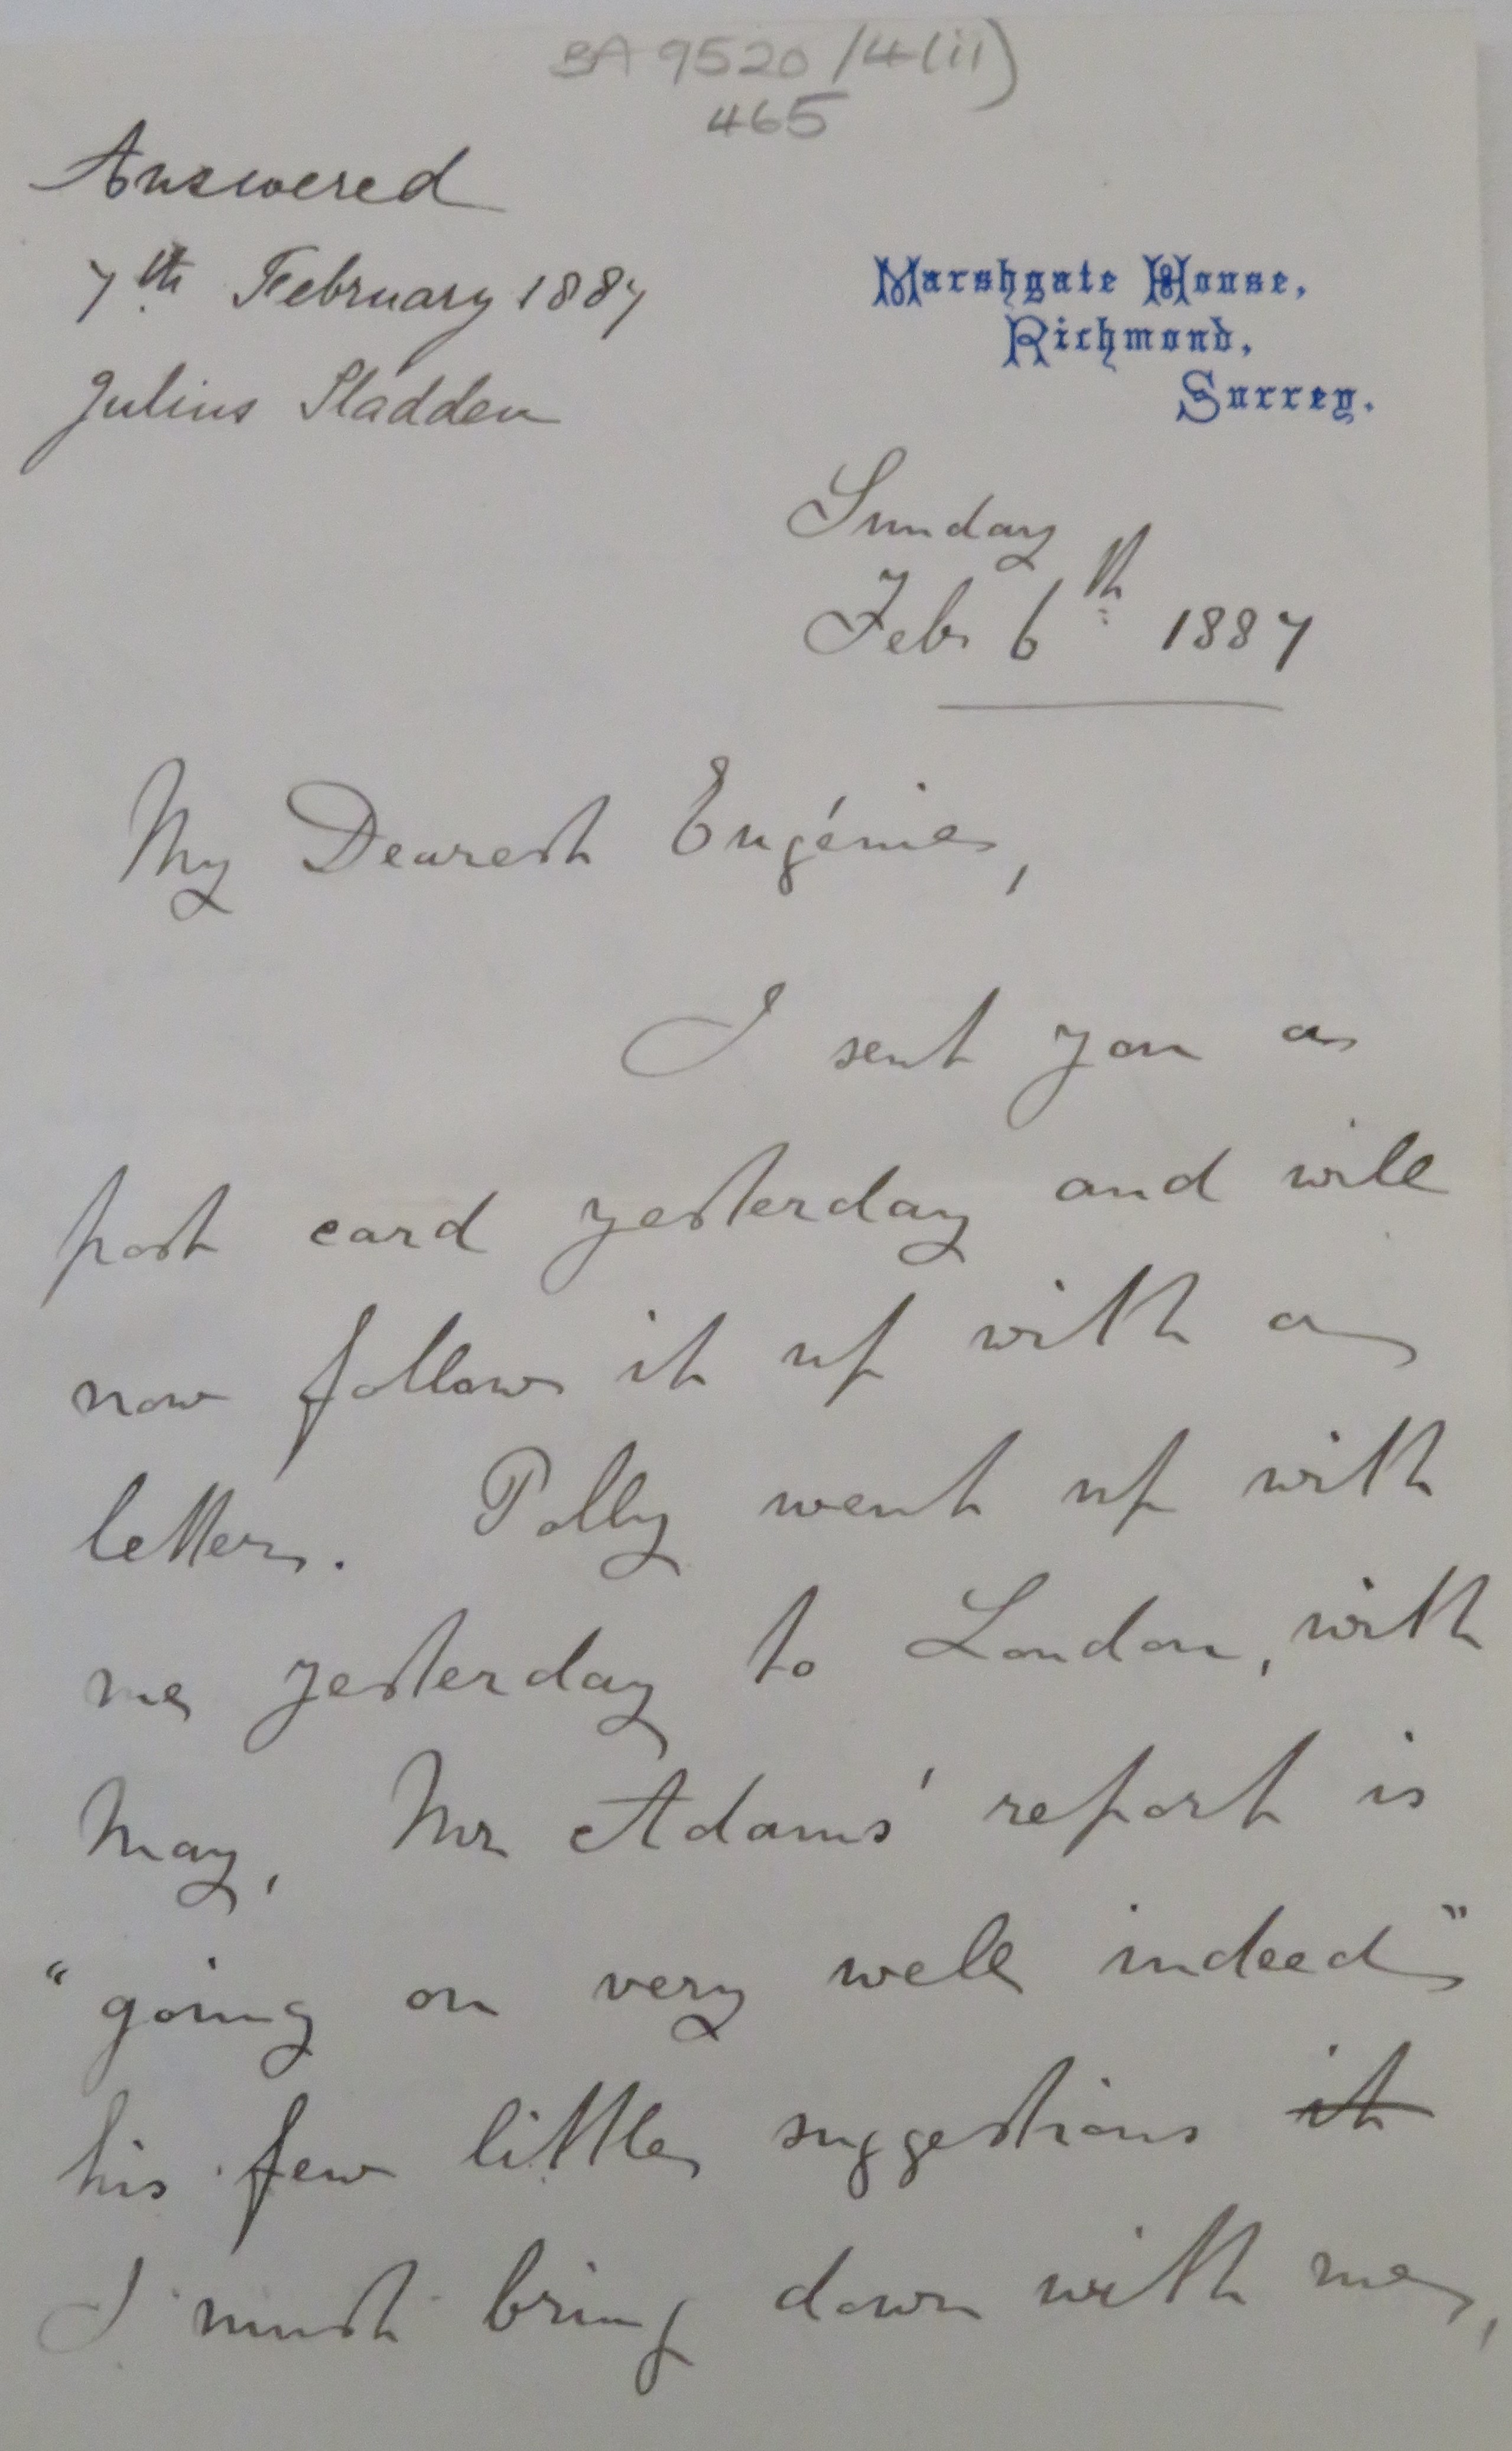 BA 9520/4(ii)
465
Answered
7th February 1887
Julius Sladden
Marshgate House,
Richmond,
Surrey.
Sunday
Feb 6th 1887
My Dearest Eugénie,
I sent you a
post card yesterday and will
now follow it up with a
letter. Polly went up with
me yesterday to London, with
May, Mr Adams' report is
"going on very well indeed"
his few little suggestions it
I must bring down with me,